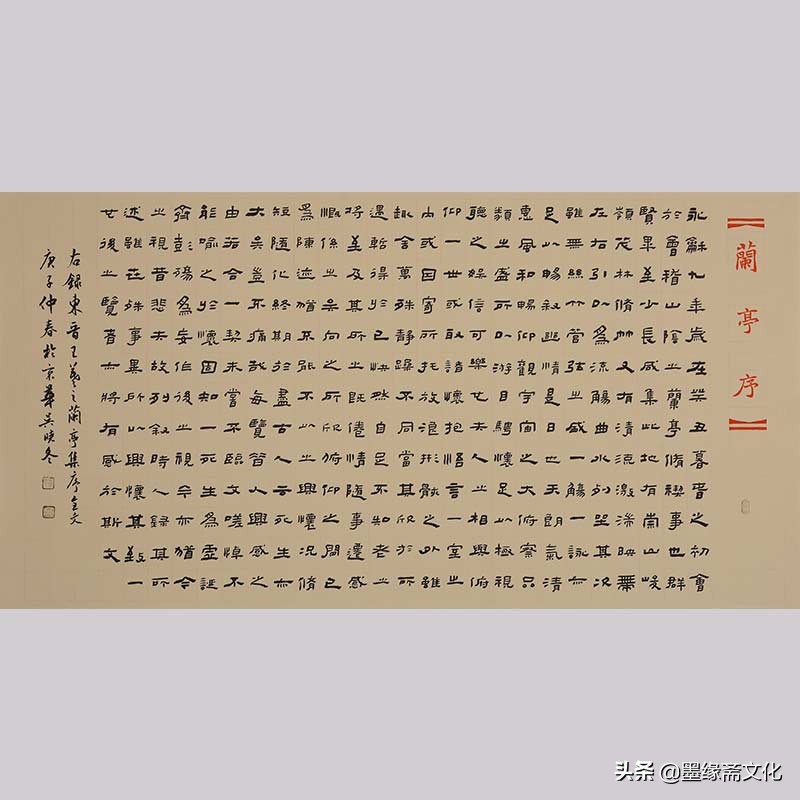 【蘭亭序】
永龢九年歲在癸丑暮春之初會
於會稽山陰之蘭亭脩禊事也群
賢畢至少長咸集此地有崇山峻
領茂林脩竹又有清流激湍映帶
左右引以為流觴曲水列坐其次
雖無絲竹管弦之盛一觴一詠亦
足以暢敘幽情是日也天朗氣清
惠風和暢仰觀宇宙之大俯察品
類之盛所以遊目騁懷足以極視
聽之娛信可樂也夫人之相與俯
仰一世或取諸懷抱悟言一室之
內或因寄所托放浪形骸之外雖
趣舍萬殊靜躁不同當其欣於所
遇暫得於己快然自足不知老之
將至及其所之既倦情隨事遷感
慨係之矣向之所欣俯仰之間已
為陳迹猶不能不以之興懷況脩
短隨化終期於盡古人云死生亦
大矣豈不痛哉每覽昔人興感之
由若合一契未嘗不臨文嗟悼不
能喻之於懷固知一死生為虛誕
齊彭殤為妄作後之視今亦猶今
之視昔悲夫故列敘時人錄其所
述雖世殊事異所以興懷其致一
也後之覽者亦將有感於斯文
右錄東晉王羲之蘭亭集序全文
庚子仲春於京華吳曉冬
头条 @墨缘斋文化